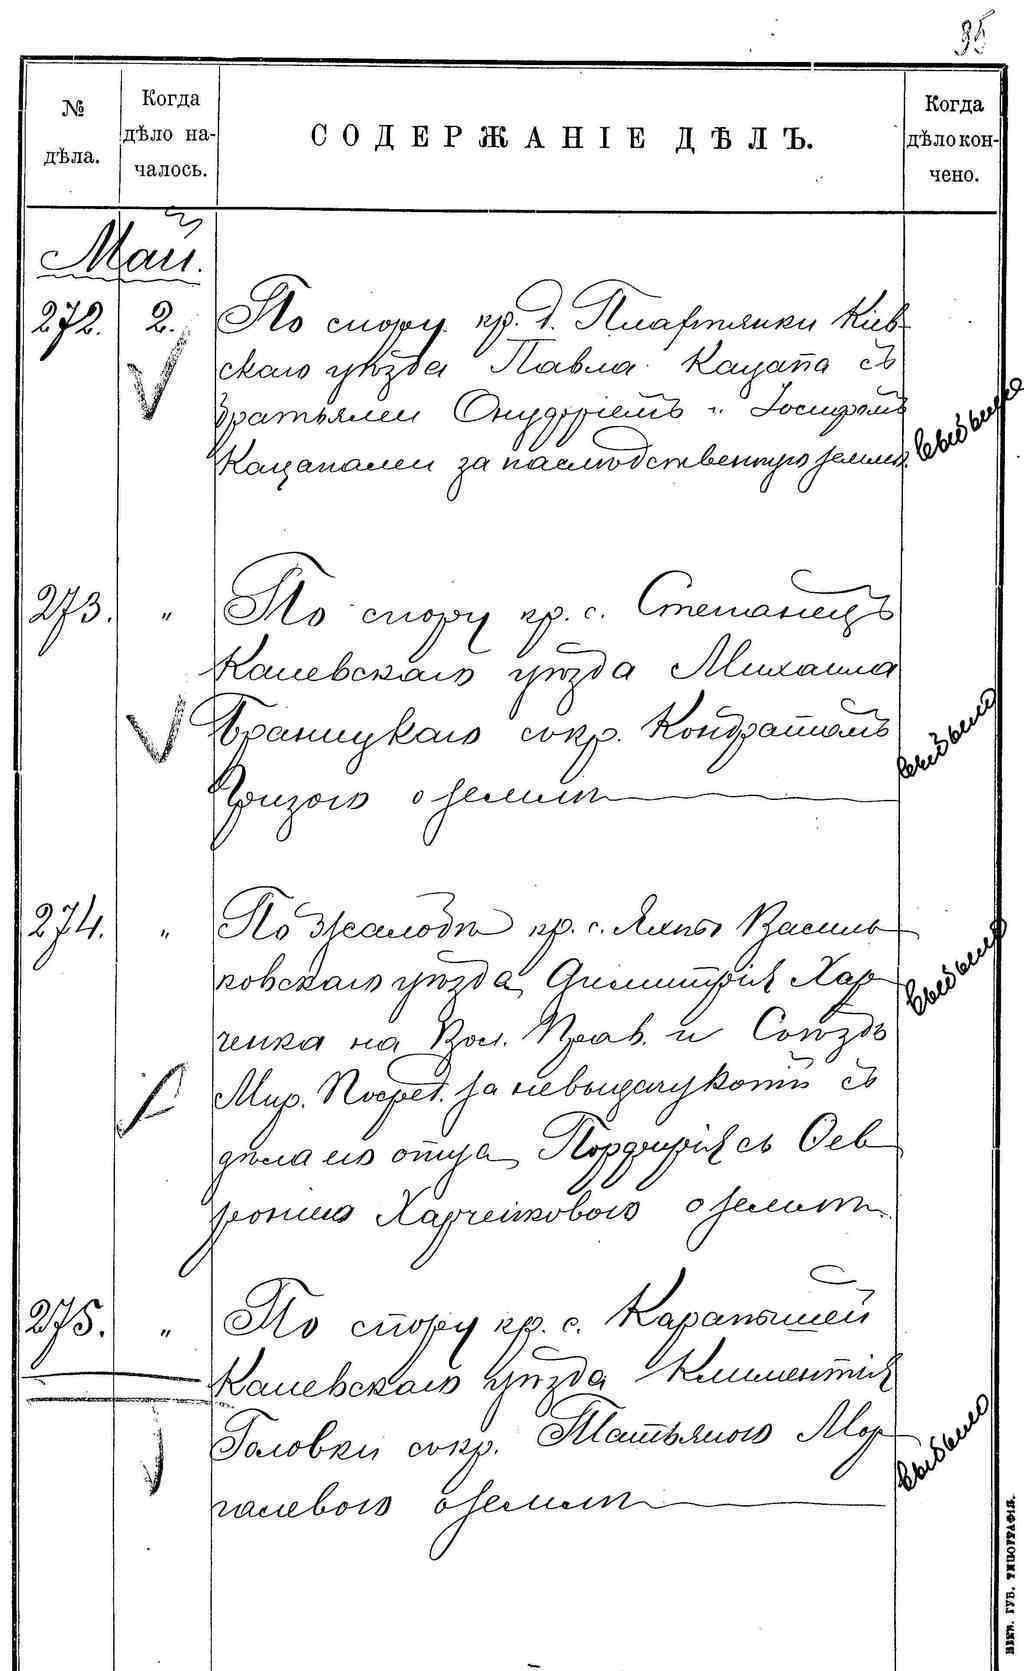 95
№ дѣла.
Когда дѣло началось.
СОДЕРЖАНІЕ ДѢЛЪ.
Когда дѣло кончено.
Май.
272. 2. По спору кр. д. Плахтянки Кіев-
скаго уѣзда Павла Кацапа съ
братьями Онуфріемъ и Іосифомъ
Кацапами за наслѣдственную землю. выбыло
273. " По спору кр. с. Степанецъ
Каневскаго уѣзда Михаила
Браницкаго съ кр. Кондратомъ
Гризою о землѣ выбыло
274. " По жалобѣ кр. с. Яхны Василь-
ковскаго уѣзда Димитрія Хар-
ченка на Вол. Прав. и Съѣздъ
Мир. Посред. за невыдачу копіи съ
дѣла его отца Порфирія съ Фев-
роніею Харченковою о землѣ. выбыло
275. " По спору кр. с. Карапышей
Каневскаго уѣзда Климентія
Головки съ кр. Татьяною Мор-
галевою о землѣ выбыло
КІЕВЪ. ГУБ. ТИПОГРАФІЯ.